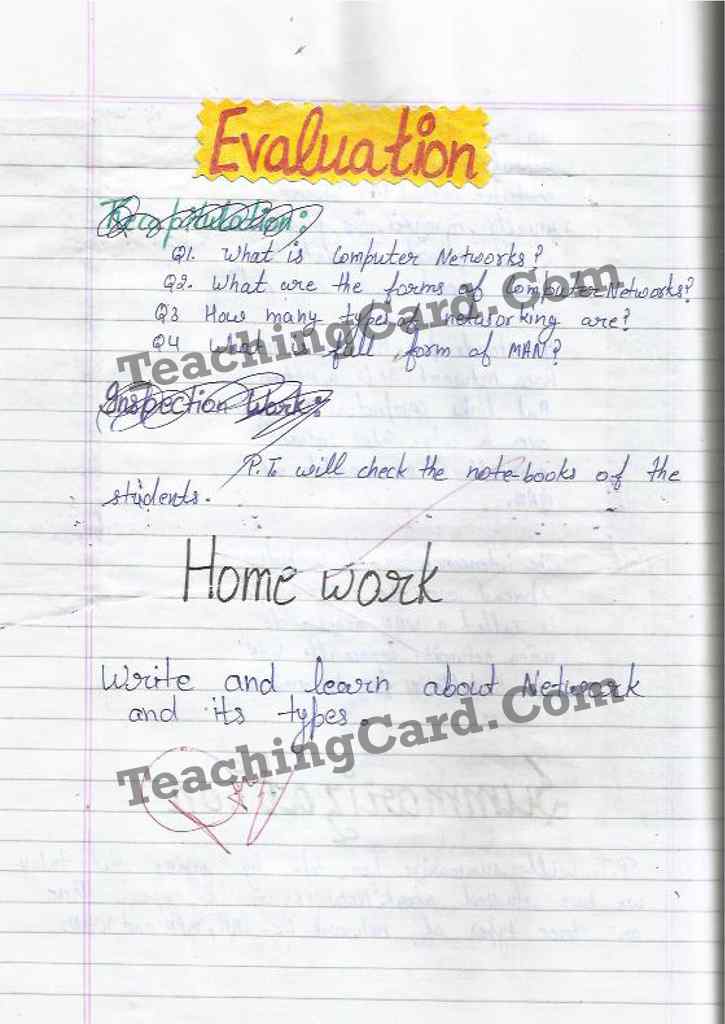 Evaluation
Recapitulation:
Q1. What is Computer Networks?
Q2. What are the forms of Computer Networks?
Q3 How many types of networking are?
TeachingCard.Com
Q4 What is full form of MAN?
Inspection Work:
P.T. will check the note-books of the
students.
Home work
Write and learn about Network
and its types.
TeachingCard.Com